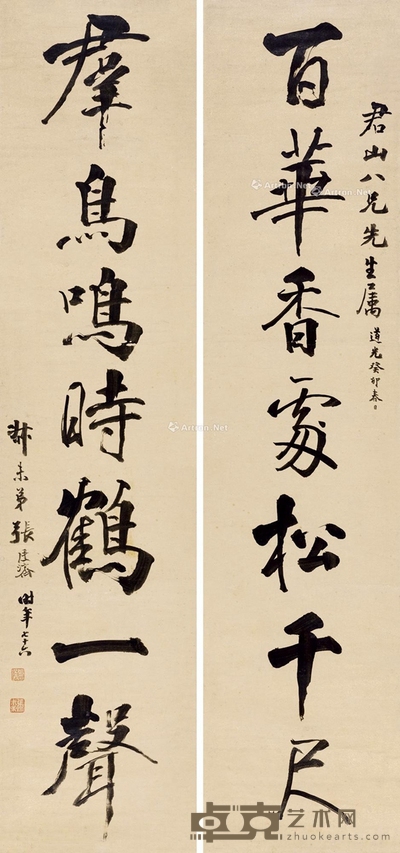 百華香處松千尺
君山八兄先生屬
道光癸卯春日
羣鳥鳴時鶴一聲
叔未弟張廷濟
時年七十六
Artron.Net
卓克艺术网
zhuokearts.com